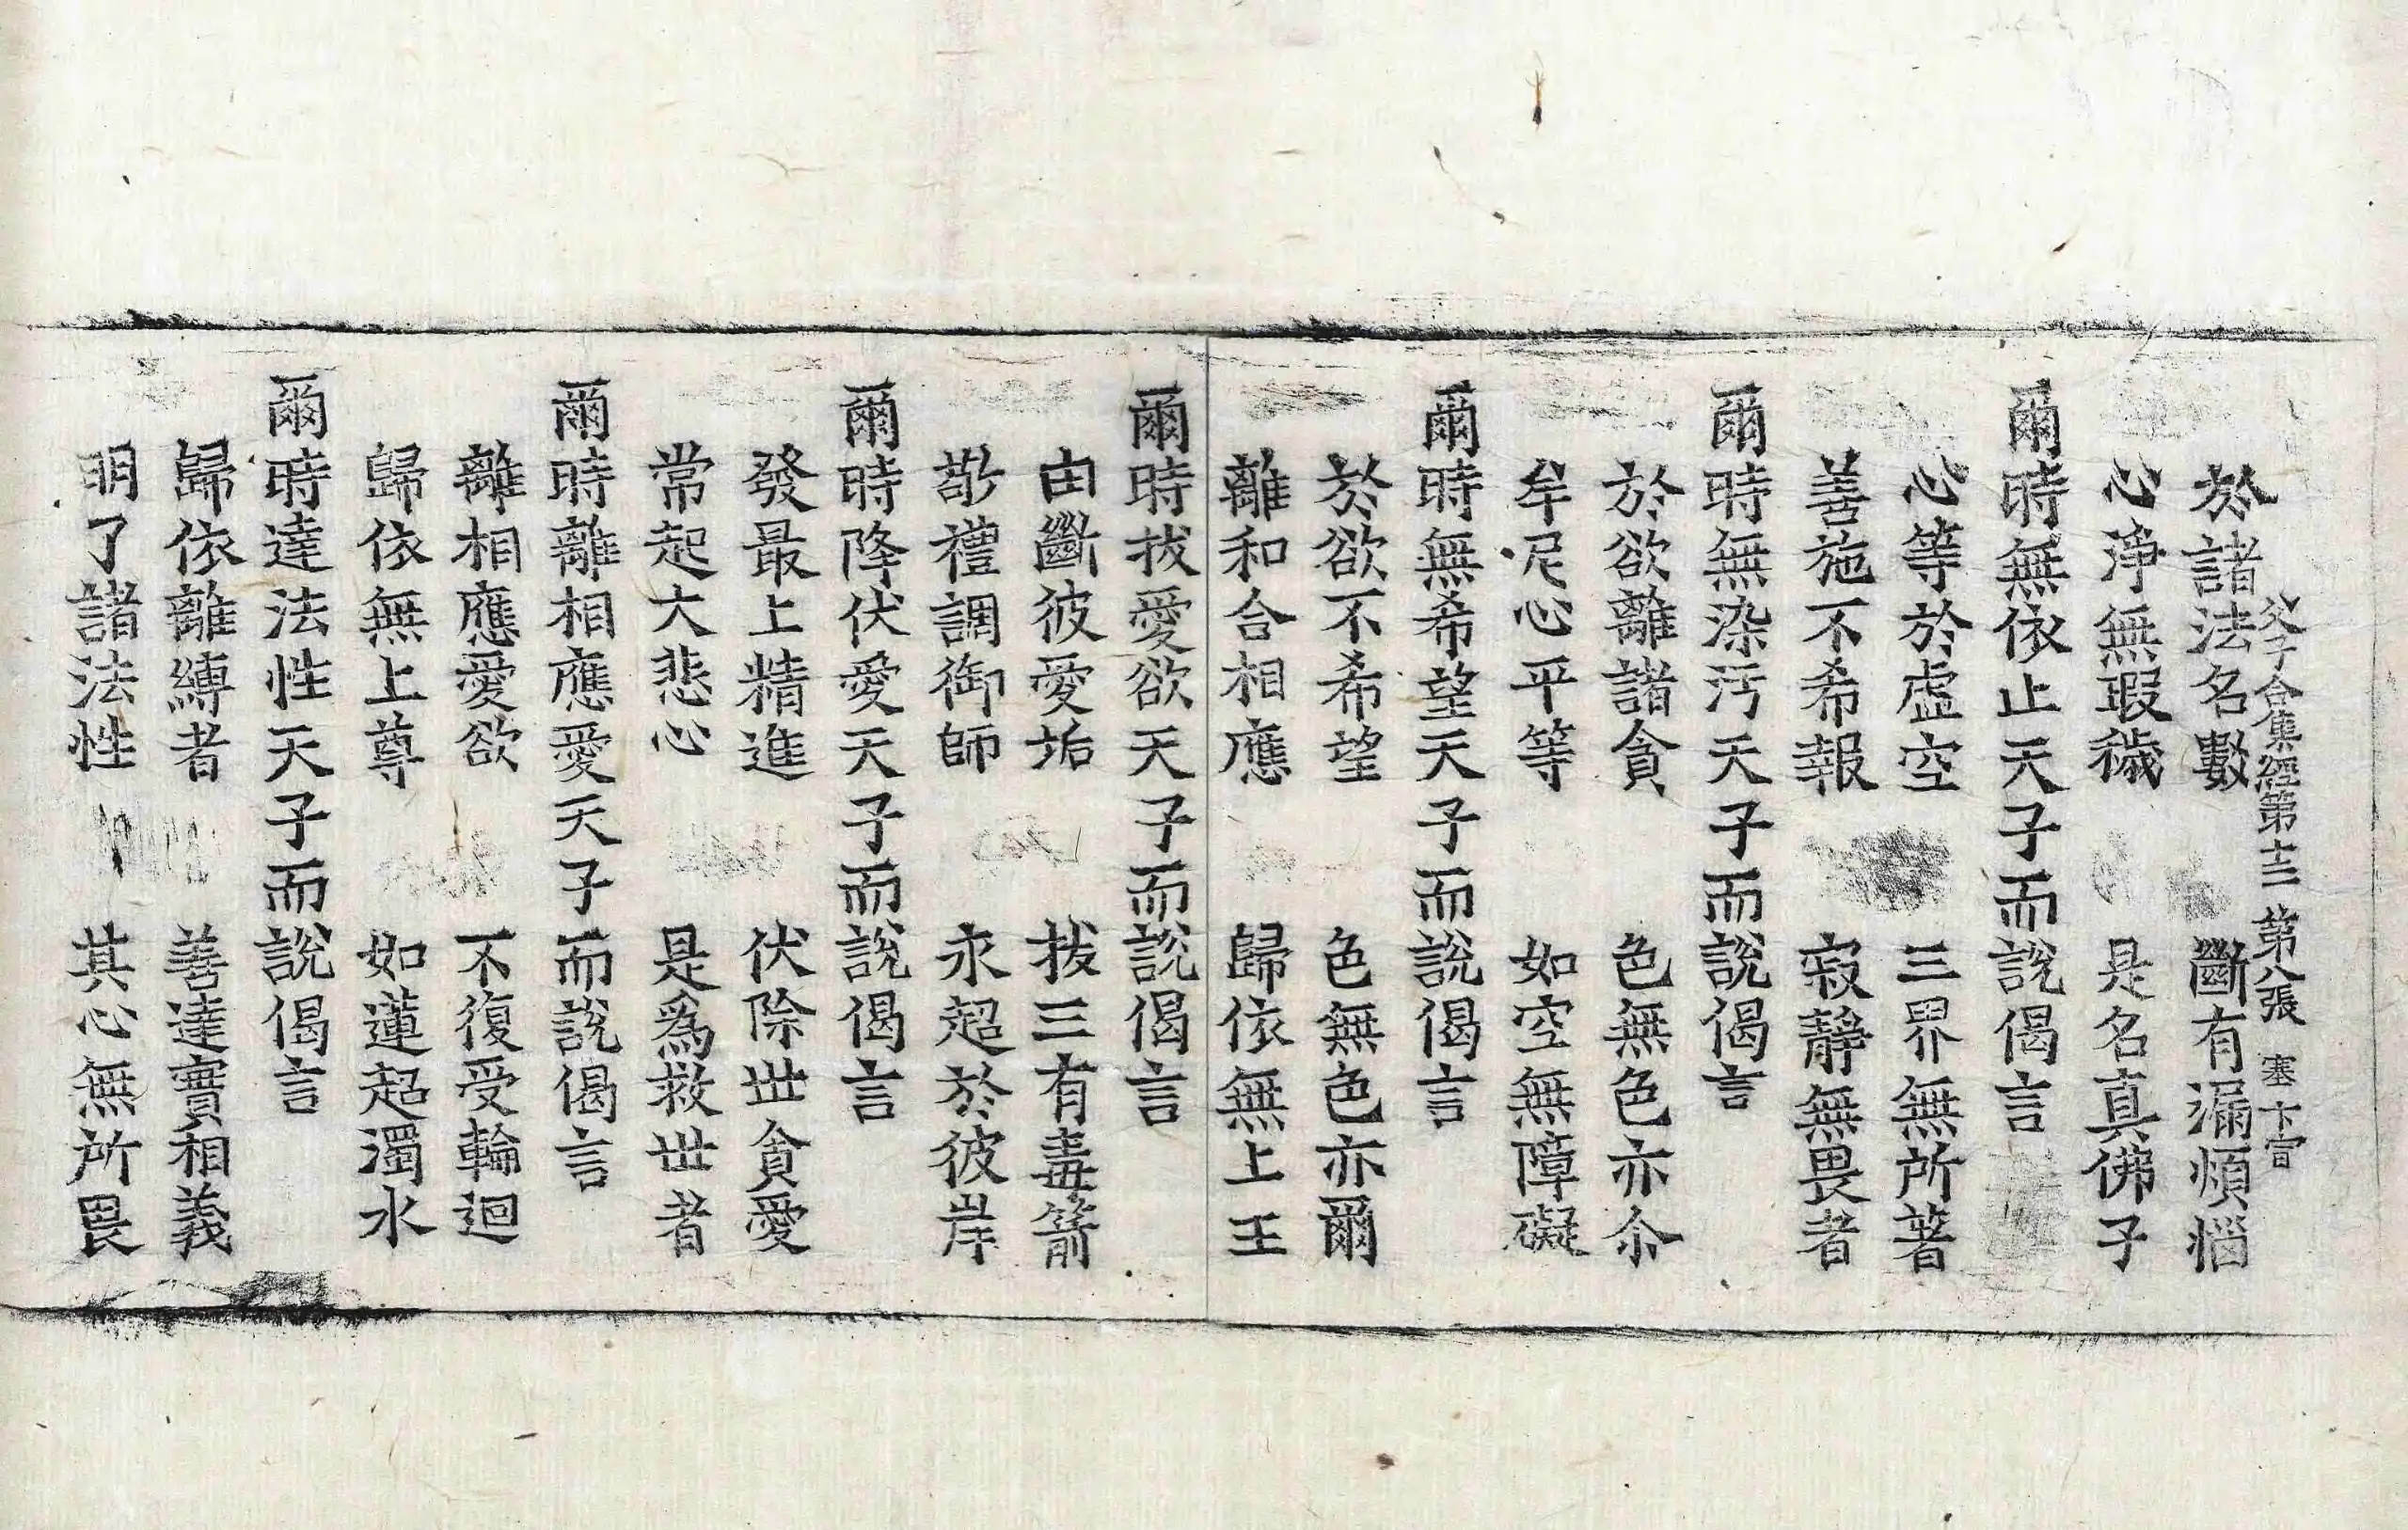 父子合集經第十二 第八張 塞 卞宮
於諸法名數 斷有漏煩惱
心淨無瑕穢 是名真佛子
爾時無依止天子而說偈言
心等於虛空 三界無所著
善施不希報 寂靜無畏者
爾時無染汚天子而說偈言
於欲離諸貪 色無色亦尒
牟尼心平等 如空無障礙
爾時無希望天子而說偈言
於欲不希望 色無色亦爾
離和合相應 歸依無上王
爾時拔愛欲天子而說偈言
由斷彼愛垢 拔三有毒箭
敬禮調御師 永超於彼岸
爾時降伏愛天子而說偈言
發最上精進 伏除世貪愛
常起大悲心 是爲救世者
爾時離相應愛天子而說偈言
離相應愛欲 不復受輪迴
歸依無上尊 如蓮超濁水
爾時達法性天子而說偈言
歸依離縛者 善達實相義
明了諸法性 其心無所畏